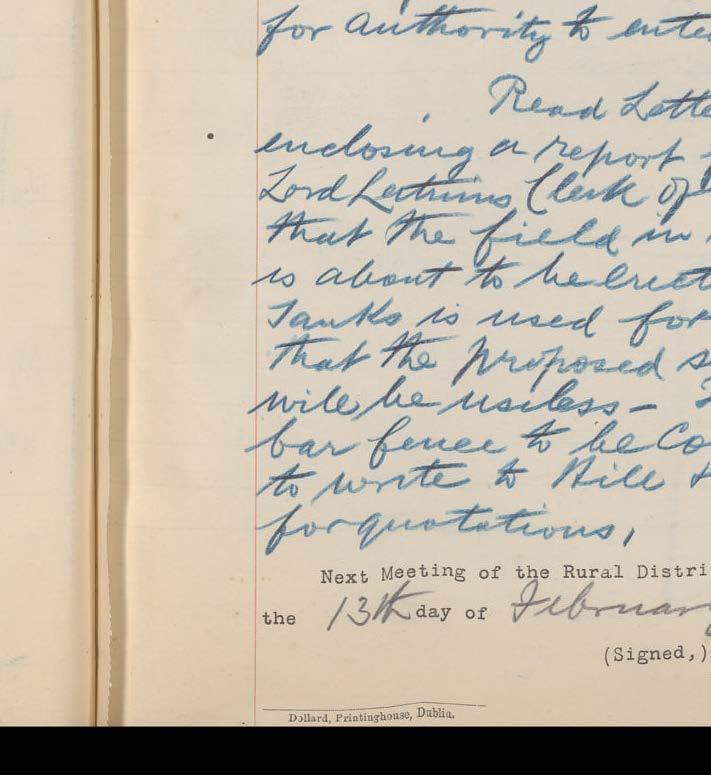 for authority to ente
Read Lette
enclosing a report f
Lord Leitrims Clerk of
that the field in
is about to be Erect
Tanks is used for
that the proposed s
will be useless –
bar fence to be Co
to write to Hill &
for quotations,
Next Meeting of the Rural Distri
the 13th day of February
(Signed,)
Dollard, Printinghouse, Dublin.